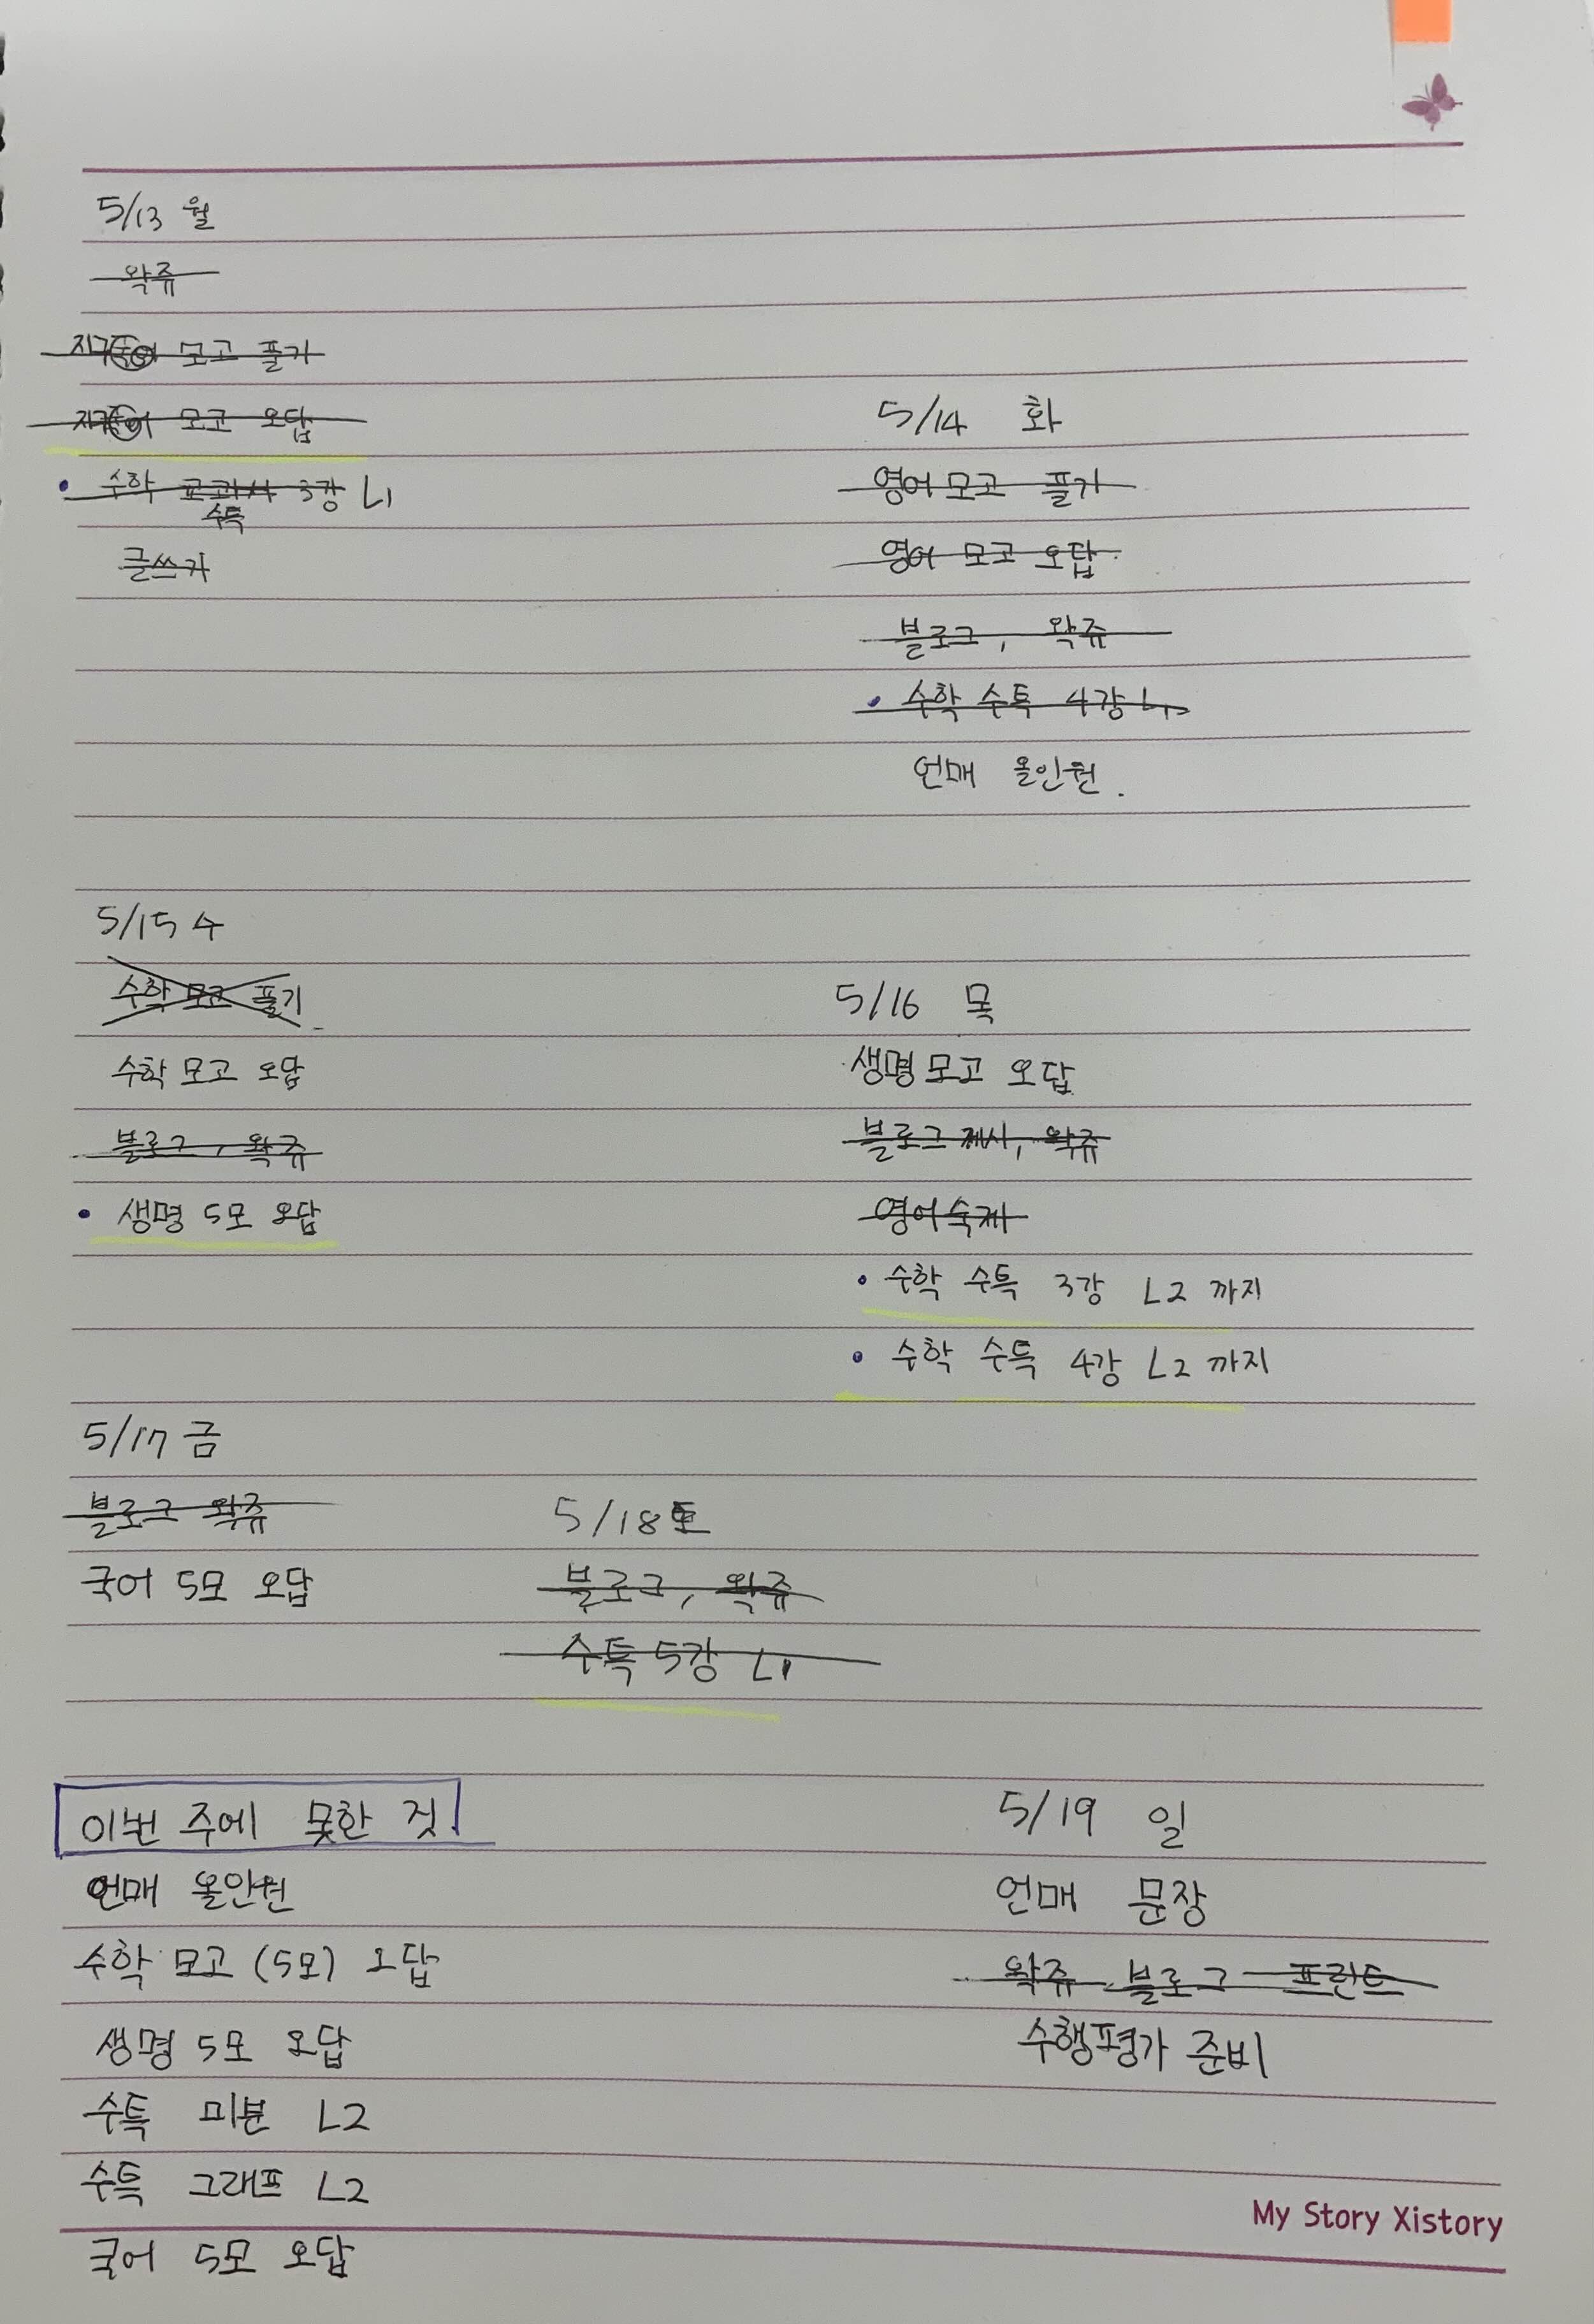 5/13 월
왁쥬
지구 모고 풀기
지구 모고 오답
• 수학 교과서 3강 L1
수특
글쓰기
5/14 화
영어 모고 풀기
영어 모고 오답
블로그, 왁쥬
• 수학 수특 4강 L1
언매 올인원.
5/15 수
수학 모고 풀기
수학 모고 오답
블로그, 왁쥬
• 생명 5모 오답
5/16 목
생명 모고 오답
블로그 게시, 왁쥬
영어숙제
• 수학 수특 3강 L2 까지
• 수학 수특 4강 L2 까지
5/17 금
블로그 왁쥬
국어 5모 오답
5/18 토
블로그, 왁쥬
수특 5강 L1
이번 주에 못한 것!
언매 올인원
수학 모고 (5모) 오답
생명 5모 오답
수특 미분 L2
수특 그래프 L2
국어 5모 오답
5/19 일
언매 문장
왁쥬 블로그 프린트
수행평가 준비
My Story Xistory